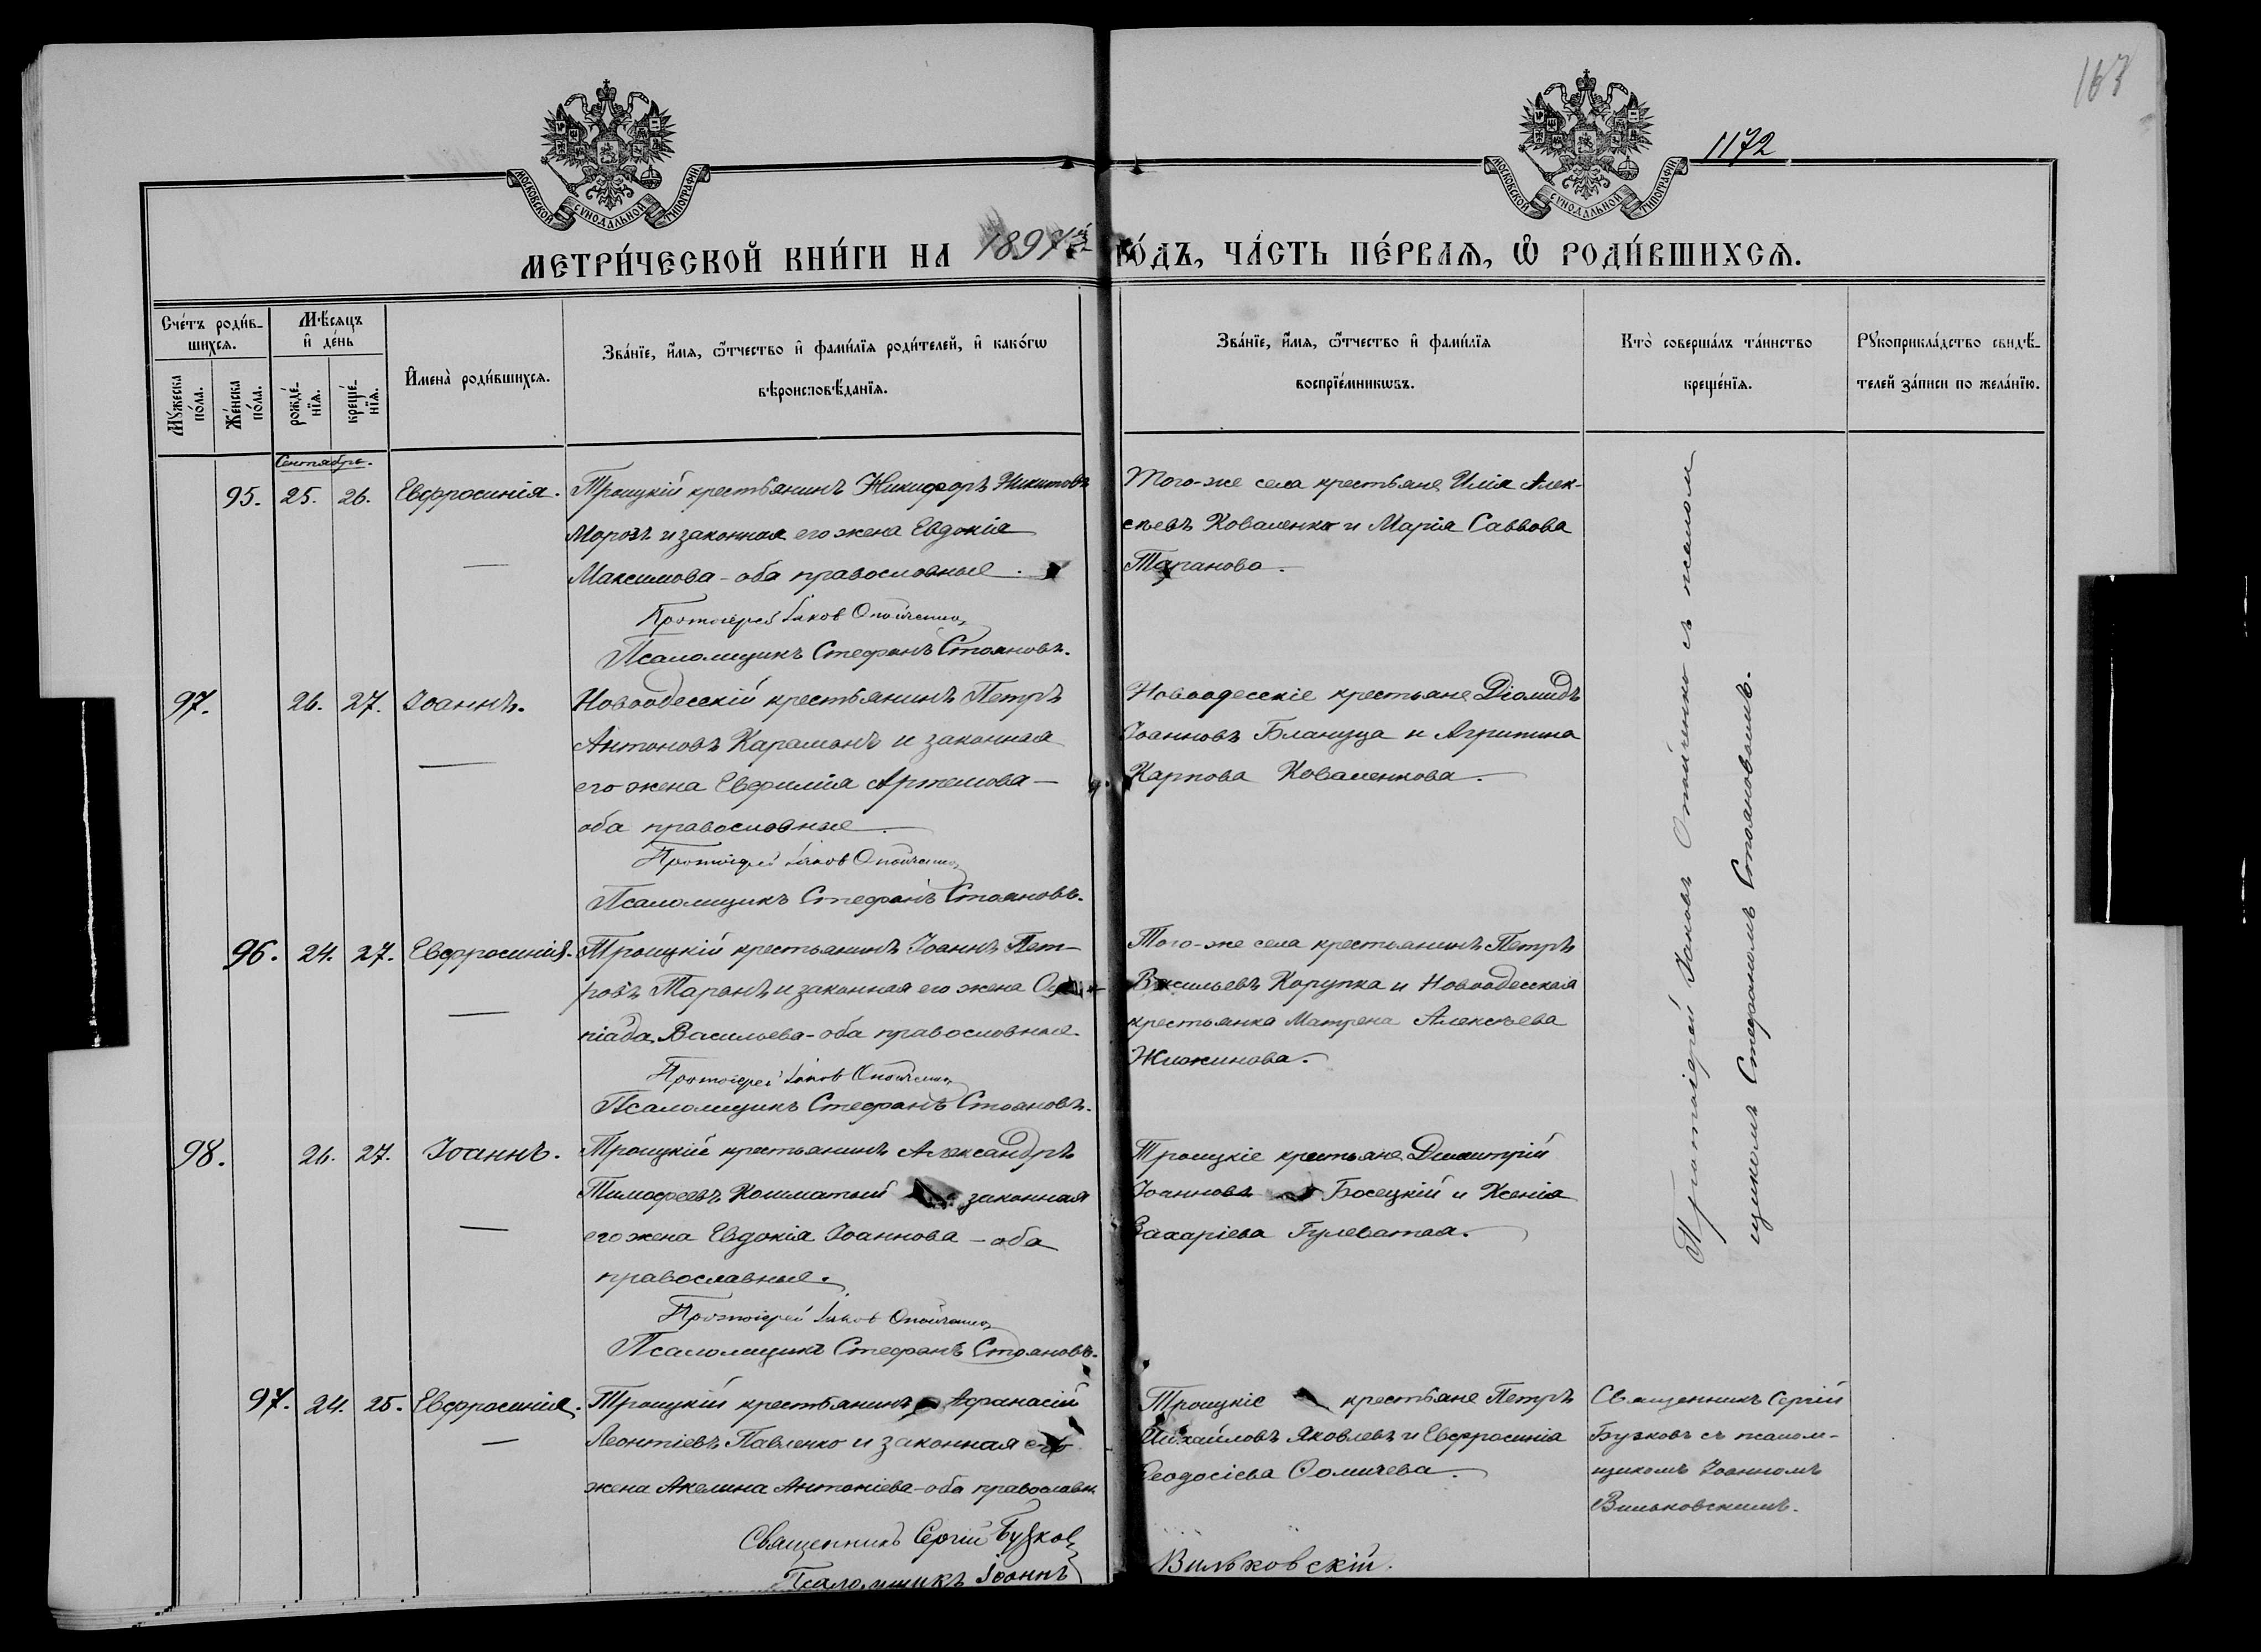 167
1172
МОСКОВСКОЙ СѴНОДАЛЬНОЙ ТИПОГРАФІИ
МОСКОВСКОЙ СѴНОДАЛЬНОЙ ТИПОГРАФІИ
МЕТРИ́ЧЕСКОЙ КНИ́ГИ НА 1897й ГО́ДЪ, ЧА́СТЬ ПЕ́РВАѦ, Ѽ РОДИ́ВШИХСѦ.
Сче́тъ роди́в-
шихсѧ.
Мꙋ́жеска
по́ла.
Же́нска
по́ла.
Мѣ́сѧцъ
и҆ де́нь
рожде́-
нїѧ.
креще́-
нїѧ.
И҆мена̀ роди́вшихсѧ.
Зва́нїе, и҆́мѧ, ѻ҆́тчество и҆ фами́лїѧ роди́телей, и҆ како́гѡ
вѣроисповѣ́данїѧ.
Зва́нїе, и҆́мѧ, ѻ҆́тчество и҆ фами́лїѧ
воспрїе́мникѡвъ.
Кто̀ соверша́лъ та́инство
креще́нїѧ.
Рꙋкоприкла́дство свидѣ́-
телей за́писи по жела́нїю.
Сентябрь.
95. 25. 26. Евфросинія. Троицкій крестьянинъ Никифоръ Никитовъ
Морозъ и законная его жена Евдокія
Максимова - оба православные.
Протоіерей Іаковъ Опойченко
Псаломщикъ Стефанъ Стояновъ.
Того-же села крестьяне Илія Алек-
сѣевъ Коваленко и Марія Саввова
Таранова.
97. 26. 27. Іоаннъ. Новоодесскій крестьянинъ Петръ
Антоновъ Караманъ и законная
его жена Евфимія Артемова -
оба православные
Протоіерей Іаковъ Опойченко
Псаломщикъ Стефанъ Стояновъ.
Новоодесскіе крестьяне Діомидъ
Іоанновъ Блануца и Агрипина
Карпова Коваленкова.
96. 24. 27. Евфросинія. Троицкій крестьянинъ Іоаннъ Пет-
ровъ Таранъ и законная его жена
піада Васильева - оба православные.
Протоіерей Іаковъ Опойченко
Псаломщикъ Стефанъ Стояновъ.
Того-же села крестьянинъ Петръ
Васильевъ Корупка и Новоодесская
крестьянка Матрена Алексѣева
98. 26. 27. Іоаннъ. Троицкій крестьянинъ Александръ
Тимофеевъ Кошматый законная
его жена Евдокія Іоаннова - оба
православные.
Протоіерей Іаковъ Опойченко
Псаломщикъ Стефанъ Стояновъ.
Троицкіе крестьяне Димитрій
Іоанновъ Босецкій и Ксенія
Захаріева Гулеватая.
Протоіерей Іаковъ Опойченко съ псалом
щикомъ Стефаномъ Стояновымъ.
97. 24. 25. Евфросинія. Троицкій крестьянинъ Афанасій
Леонтіевъ Павленко и законная его
жена Акелина Антоніева - оба православн.
Священникъ Сергій Бузковъ
Псаломщикъ Іоаннъ Вильковскій.
Троицкіе крестьяне Петръ
Михайловъ Яковлевъ и Евфросинія
Ѳеодосіева Ѳомичева.
Священникъ Сергій
Бузковъ съ псалом-
щикомъ Іоанномъ
Вильковскимъ.